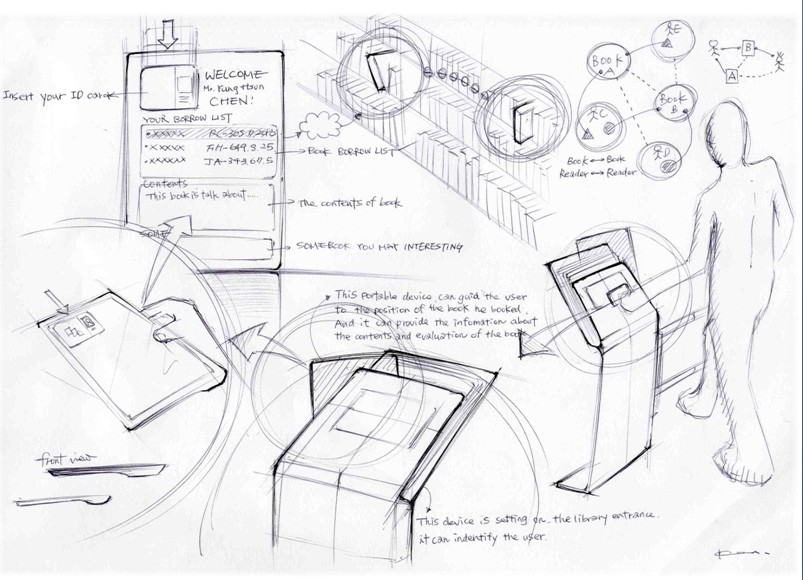 Insert your ID card
WELCOME
Mr. Kung Hsun
CHEN!
YOUR BORROW LIST
• xxxxx
• xxxxx FH-649.5.25
• xxxxx JA-343.67.5
BOOK BORROW LIST
Contents
This book is talk about....
The contents of book
SOME
SOMEBOOK YOU MAY INTERESTING
This portable device can guid the user
to the position of the book he booked.
And it can provide the infomation about
the contents and evaluation of the book.
front view
This device is setting on the library entrance.
it can indentify the user.
BOOK
A
E
C
BOOK
B
D
Book ↔ Book
Reader ↔ Reader
B
A